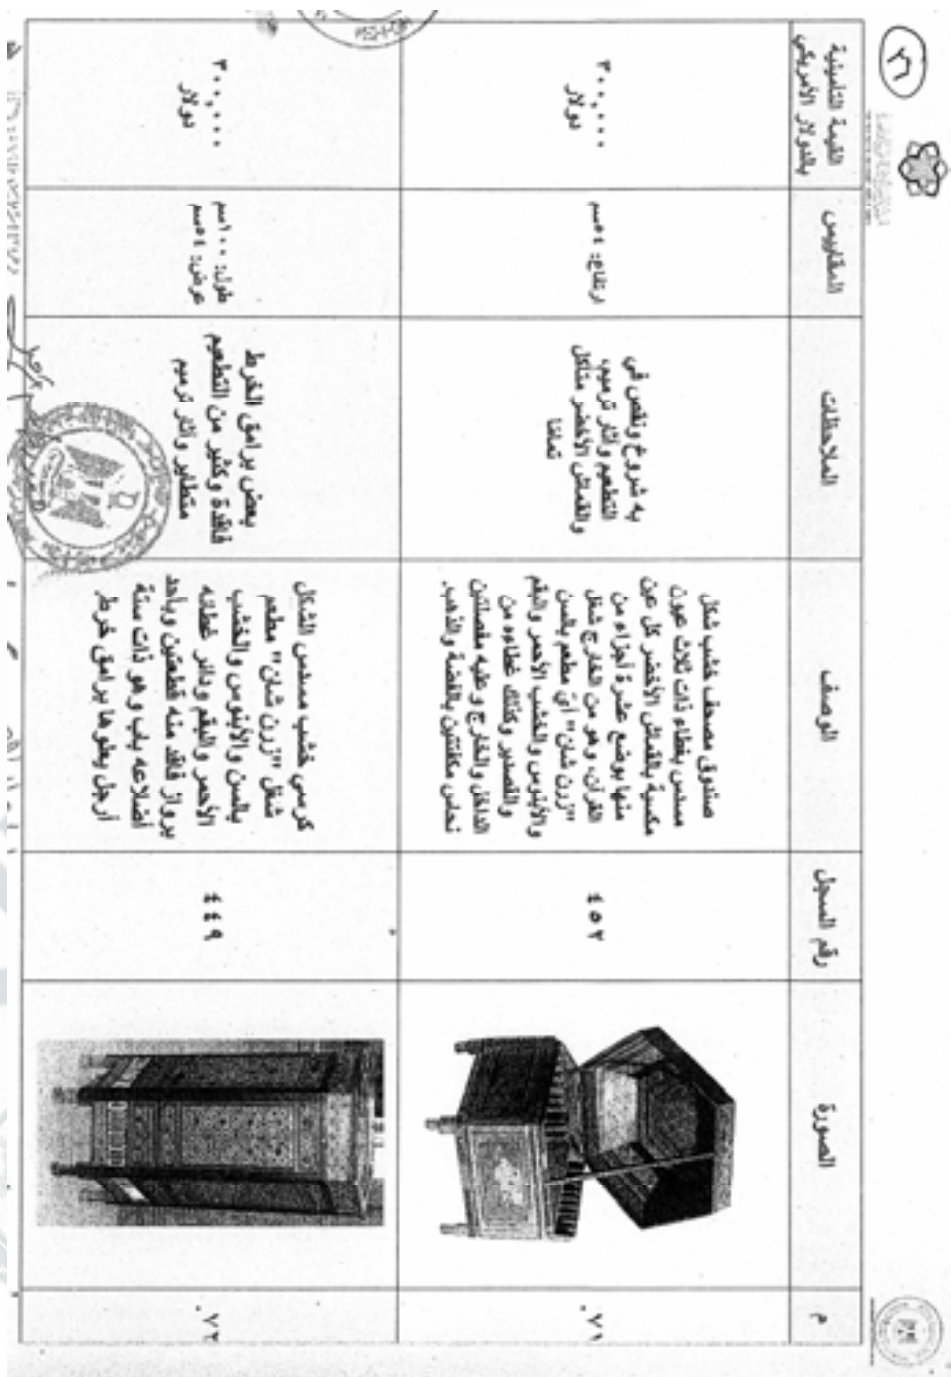 ٢٦
م
الصورة
رقم السجل
الوصف
الملاحظات
المقاييس
القيمة التأمينية
بالدولار الأمريكي
٧١.
٤٥٢
صندوق مصحف خشب شكل
مسدس بغطاء ذات ثلاث عيون
مكسية بالقماش الأخضر كل عين
منها بوضع عشرة أجزاء من
القرآن، وهو من الخارج شغل
"زرن شان" أي مطعم بالسن
والأبنوس والخشب الأحمر والبقم
والقصدير وكذلك غطاءه من
الداخل والخارج وعليه مفصلتين
نحاس مكفتتين بالفضة والذهب.
به شروخ ونقص في
التطعيم وآثار ترميم،
والقماش الأخضر متآكل
تمامًا
ارتفاع: ٥٤سم
٣٠٠,٠٠٠
دولار
٧٢.
٤٤٩
كرسي خشب مسدس الشكل
شغل "زرن شان" مطعم
بالسن والأبنوس والخشب
الأحمر والبقم ودائر غطائه
برواز فاقد منه قطعتين وبأحد
أضلاعه باب وهو ذات ستة
أرجل يعلوها برامق خرط.
بعض برامق الخرط
فاقدة وكثير من التطعيم
متطاير وآثار ترميم
طول: ١٠٠سم
عرض: ٥٤سم
٣٠٠,٠٠٠
دولار